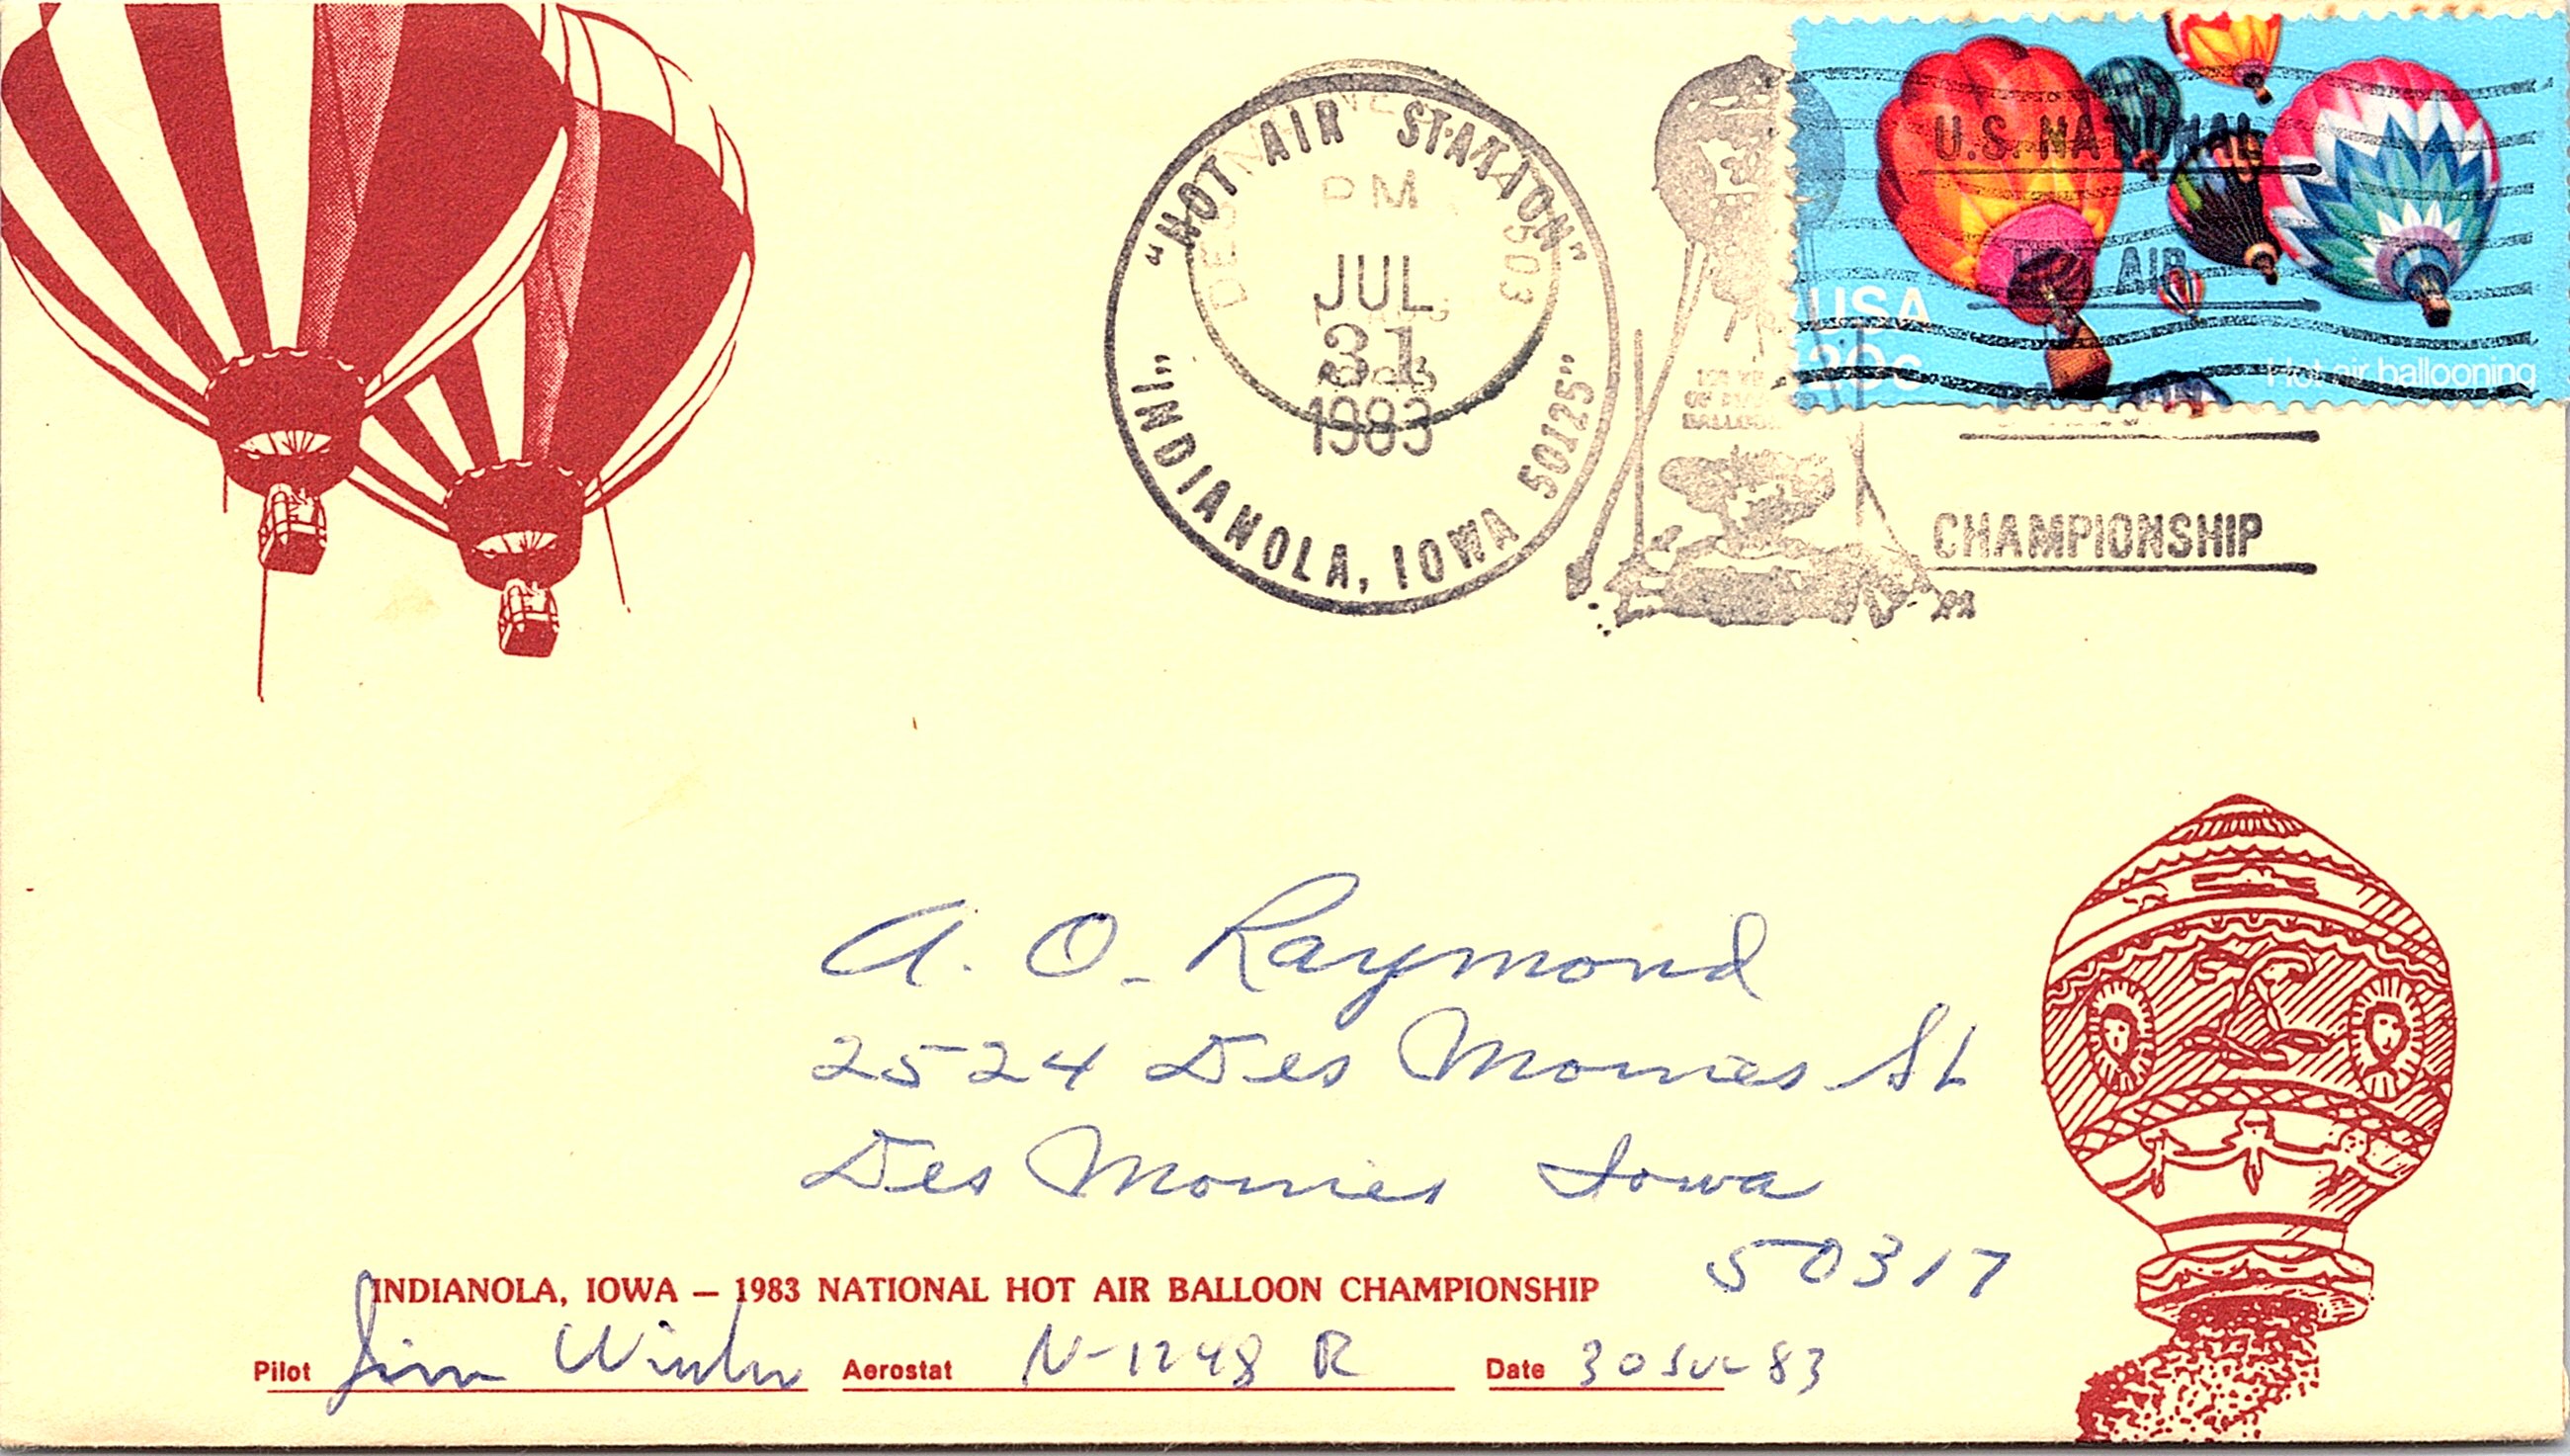 "HOT AIR STATION"
PM
JUL
31
1983
"INDIANOLA, IOWA 50125"
U.S. NATIONAL
HOT AIR
BALLOON
CHAMPIONSHIP
USA
20c
Hot air ballooning
A. O. Raymond
2524 Des Moines St
Des Moines Iowa
50317
INDIANOLA, IOWA — 1983 NATIONAL HOT AIR BALLOON CHAMPIONSHIP
Pilot Jim Aerostat N-1248 R Date 30 JUL 83